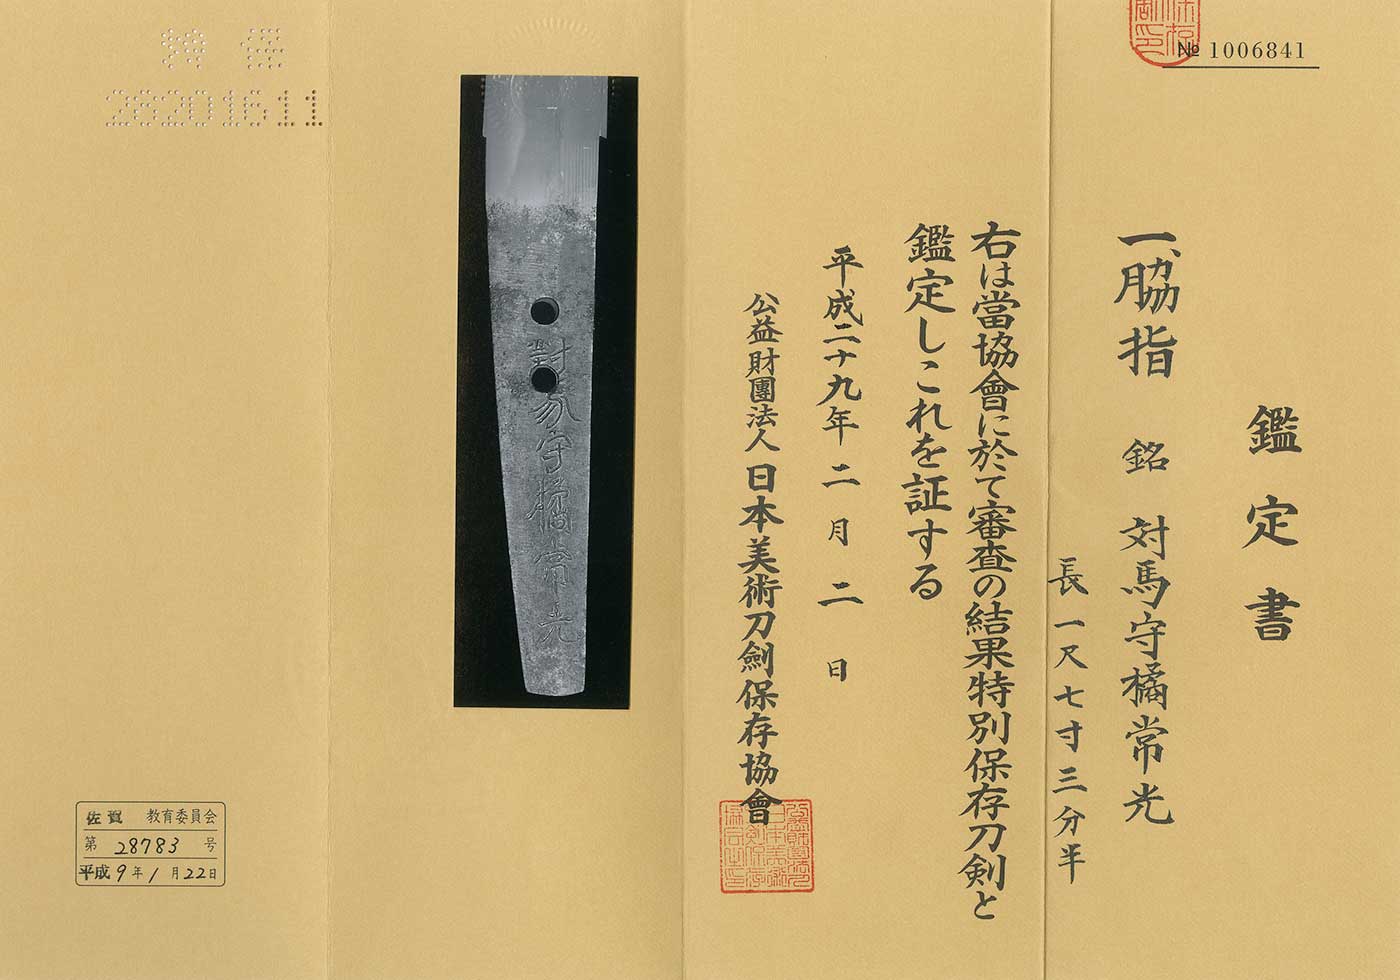 № 1006841
鑑定書
一、脇指 銘 対馬守橘常光
長一尺七寸三分半
右は當協會に於て審査の結果特別保存刀剣と
鑑定しこれを証する
平成二十九年二月二日
公益財團法人日本美術刀劍保存協會
對馬守橘常光
特保
28201611
佐賀 教育委員会
第 28783 号
平成 9年 1月 22日